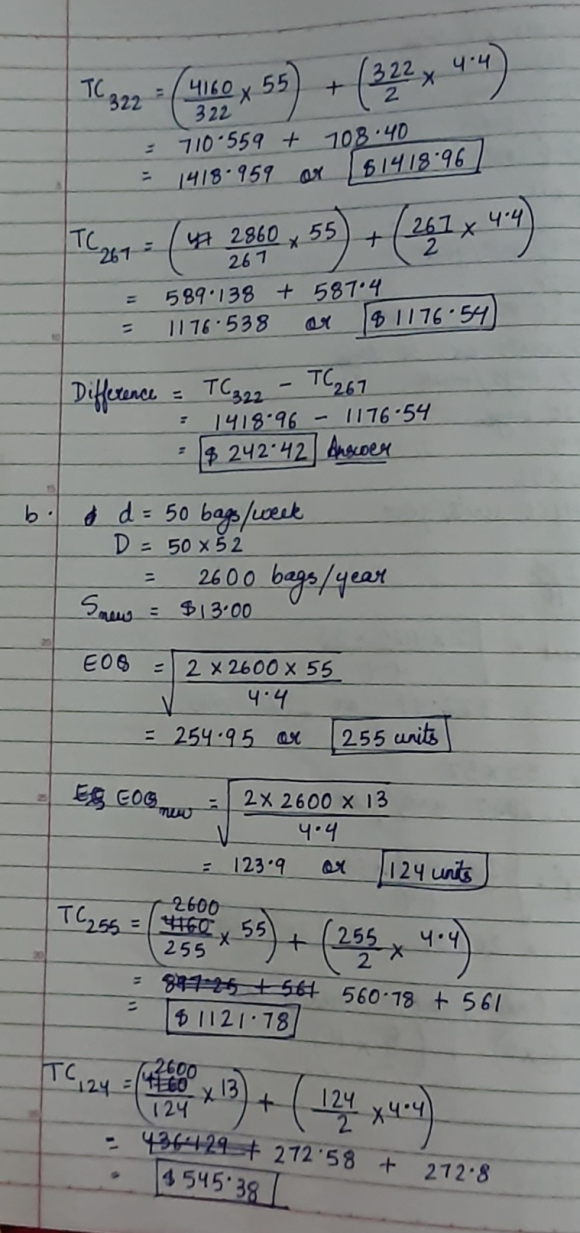 TC322 = (4160/322 × 55) + (322/2 × 4.4)
= 710.559 + 708.40
= 1418.959 or $1418.96
TC267 = (2860/267 × 55) + (267/2 × 4.4)
= 589.138 + 587.4
= 1176.538 or $1176.54
Difference = TC322 − TC267
= 1418.96 − 1176.54
= $242.42 Answer
b. d = 50 bags/week
D = 50 × 52
= 2600 bags/year
Snew = $13.00
EOQ = √(2 × 2600 × 55 / 4.4)
= 254.95 or 255 units
EOQnew = √(2 × 2600 × 13 / 4.4)
= 123.9 or 124 units
TC255 = (2600/255 × 55) + (255/2 × 4.4)
= 560.78 + 561
= $1121.78
TC124 = (2600/124 × 13) + (124/2 × 4.4)
= 272.58 + 272.8
= $545.38